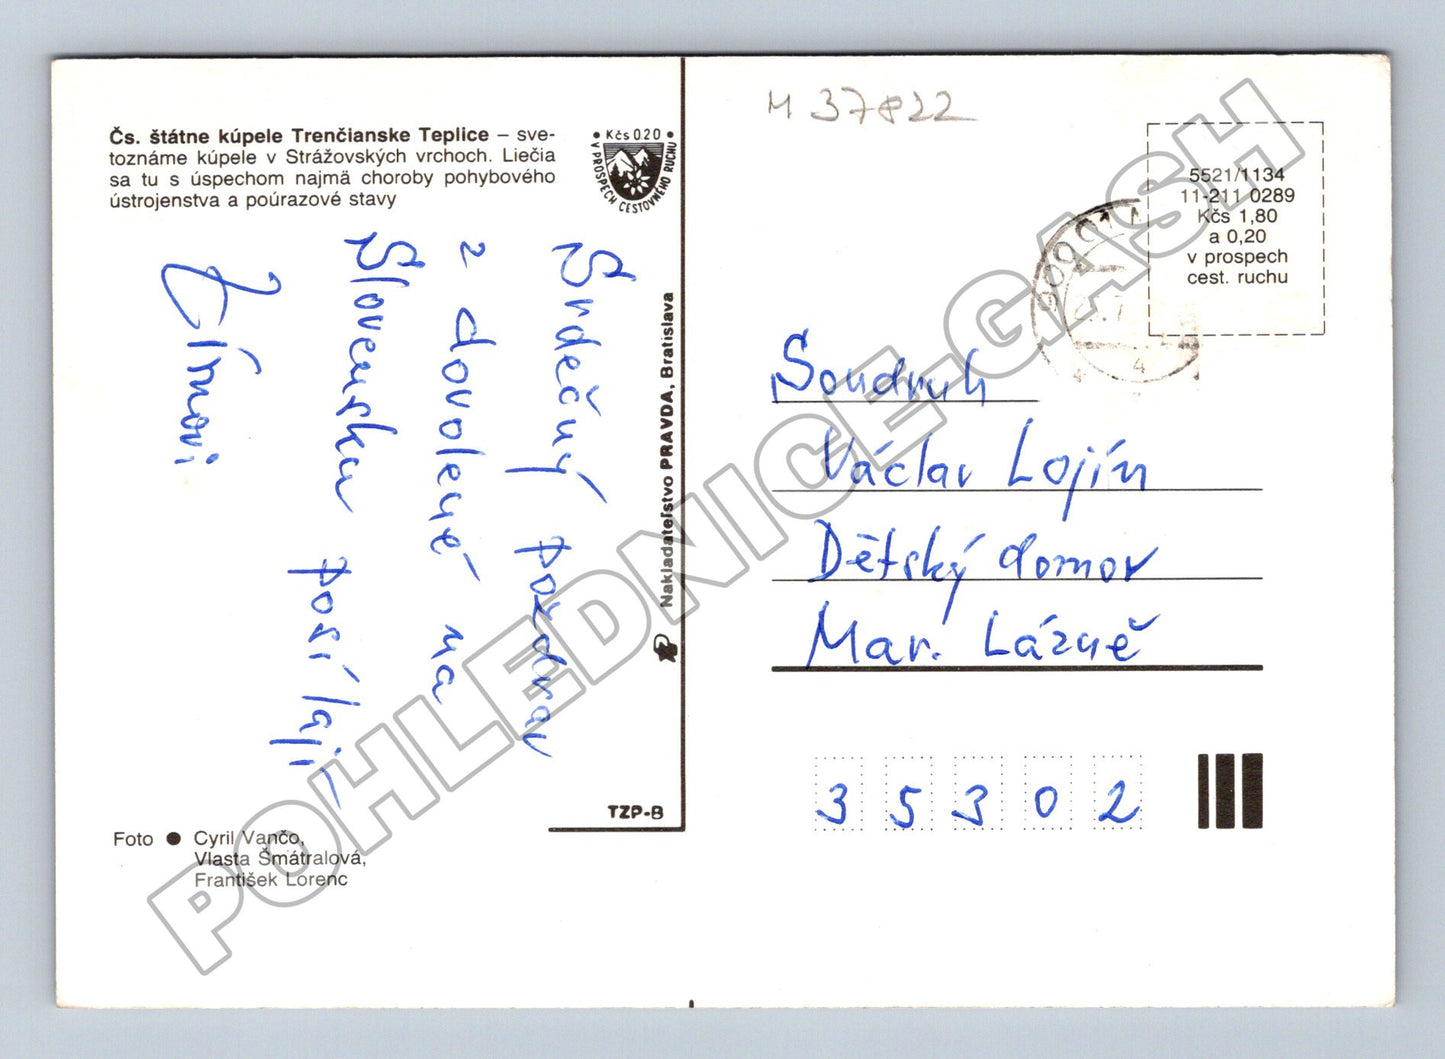 M 37822
Čs. štátne kúpele Trenčianske Teplice – sve-
toznáme kúpele v Strážovských vrchoch. Liečia
sa tu s úspechom najmä choroby pohybového
ústrojenstva a poúrazové stavy
• Kčs 0.20 •
V PROSPECH CESTOVNÉHO RUCHU
Srdečný pozdrav
z dovolené na
Slovensku posílají
Nakladateľstvo PRAVDA, Bratislava
TZP-B
Foto ● Cyril Vančo,
Vlasta Šmátralová,
František Lorenc
5521/1134
11-211 0289
Kčs 1,80
a 0,20
v prospech
cest. ruchu
Soudruh
Václav Lojín
Dětský domov
Mar. Lázně
35302
POHLEDNICE-GASH